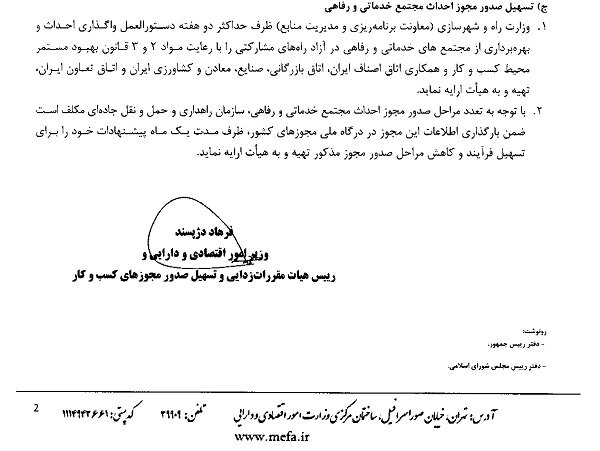 ج) تسهیل صدور مجوز احداث مجتمع خدماتی و رفاهی
۱. وزارت راه و شهرسازی (معاونت برنامه‌ریزی و مدیریت منابع) ظرف حداکثر دو هفته دستورالعمل واگذاری احداث و
بهره‌برداری از مجتمع های خدماتی و رفاهی در آزاد راه‌های مشارکتی را با رعایت مواد ۲ و ۳ قانون بهبود مستمر
محیط کسب و کار و همکاری اتاق اصناف ایران، اتاق بازرگانی، صنایع، معادن و کشاورزی ایران و اتاق تعاون ایران،
تهیه و به هیأت ارایه نماید.
۲. با توجه به تعدد مراحل صدور مجوز احداث مجتمع خدماتی و رفاهی، سازمان راهداری و حمل و نقل جاده‌ای مکلف است
ضمن بارگذاری اطلاعات این مجوز در درگاه ملی مجوزهای کشور، ظرف مدت یک ماه پیشنهادات خود را برای
تسهیل فرآیند و کاهش مراحل صدور مجوز مذکور تهیه و به هیأت ارایه نماید.
فرهاد دژپسند
وزیر امور اقتصادی و دارایی و
رییس هیات مقررات‌زدایی و تسهیل صدور مجوزهای کسب و کار
رونوشت:
- دفتر رییس جمهور.
- دفتر رییس مجلس شورای اسلامی.
آدرس: تهران، خیابان صوراسرافیل، ساختمان مرکزی وزارت امور اقتصادی و دارایی تلفن: ۳۹۹۰۹ کد پستی: ۱۱۱۴۹۴۳۶۶۱
2
www.mefa.ir